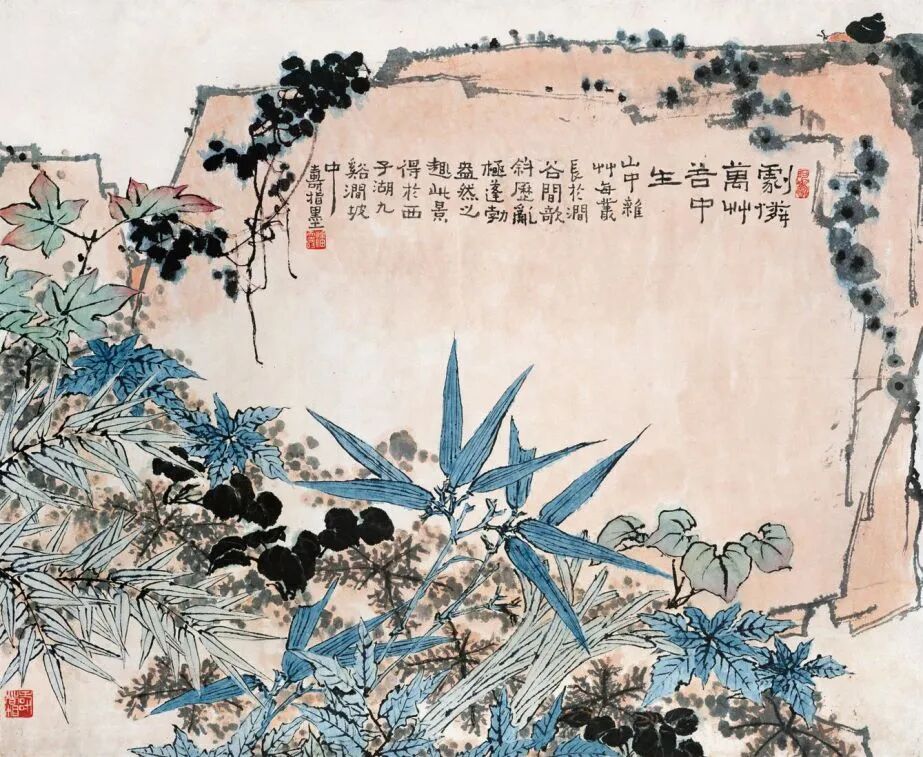 劇憐
萬艸
苦中
生
山中雜
艸每叢
長於澗
谷間欹
斜歷亂
極蓬勃
盎然之
趣此景
得於西
子湖九
谿澗坡
中
壽指墨